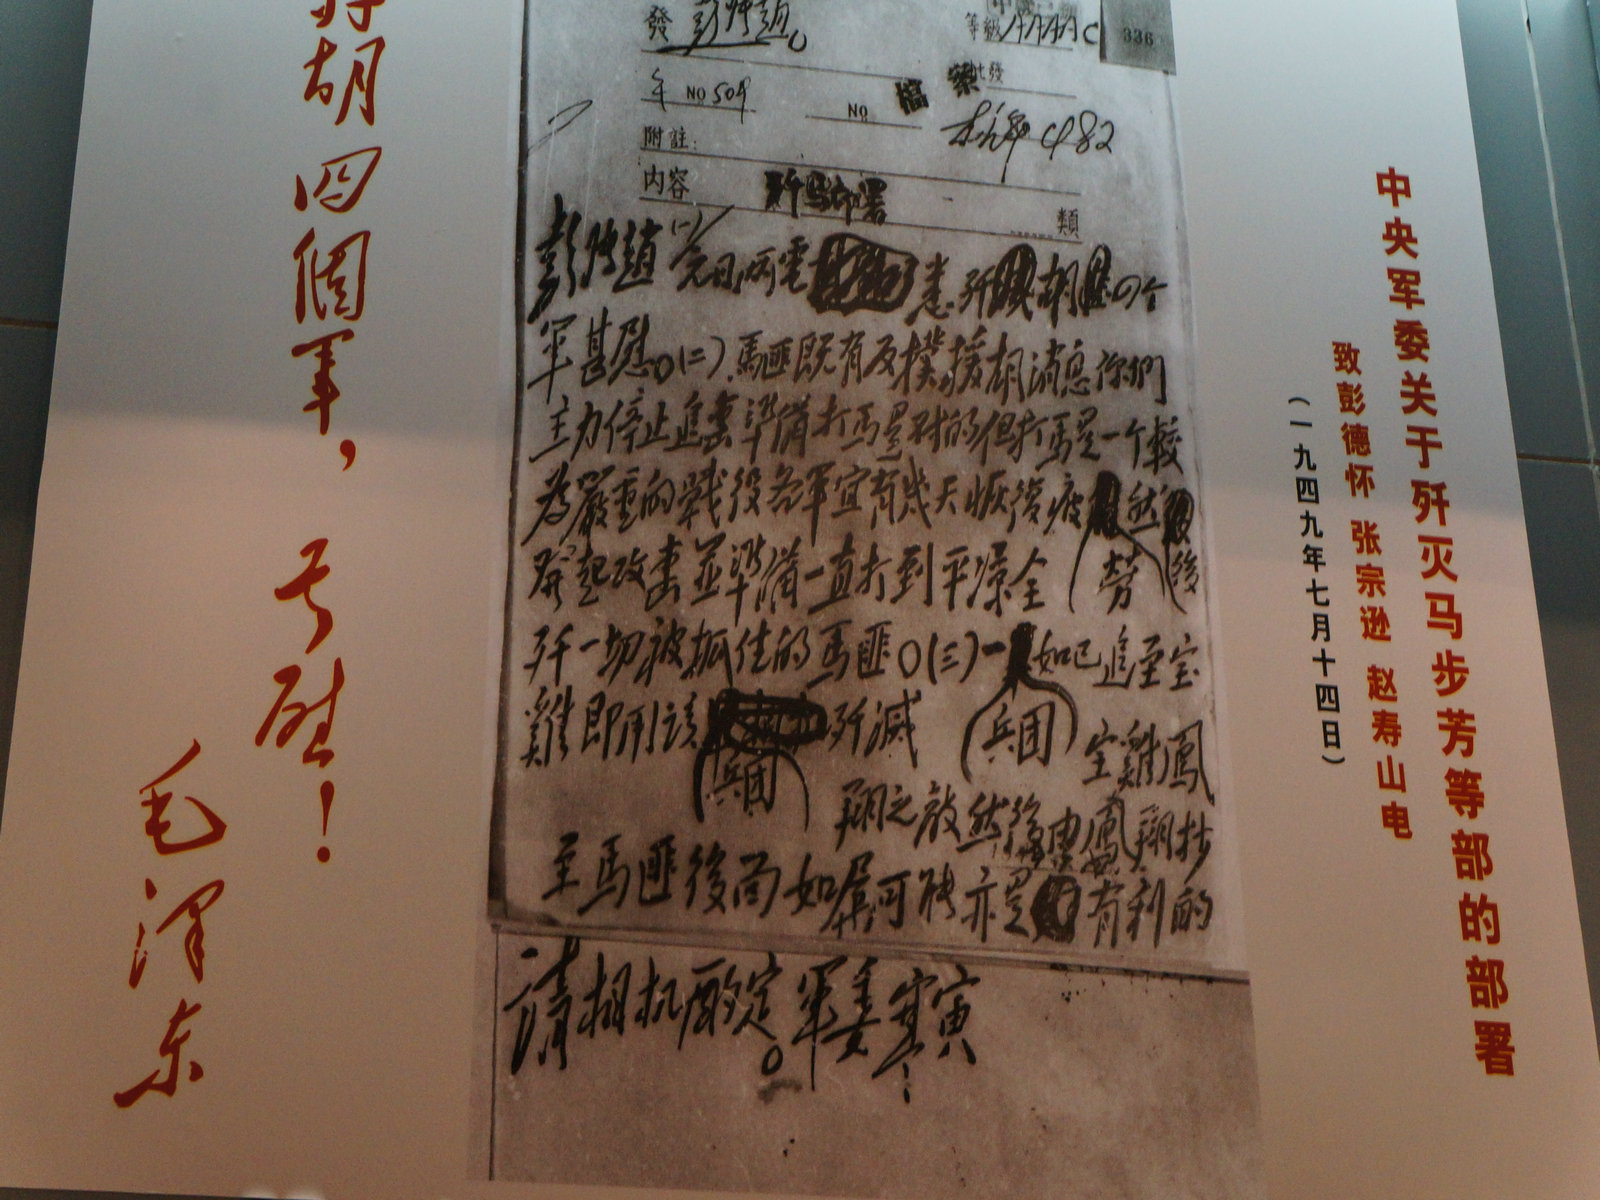 中央军委关于歼灭马步芳等部的部署
致彭德怀 张宗逊 赵寿山电
（一九四九年七月十四日）
發 彭張趙
等級
336
NO 509
NO
檔案
批發
482
附註:
内容 歼马部署 類
彭張趙(一)
悉歼胡四个
軍甚慰。(二)馬匪既有反撲援胡消息你們
主力停止追擊準備打馬是對的但打馬是一个較
為嚴重的戰役各軍宜有幾天恢復疲勞然後
發起攻擊並準備一直打到平凉全
歼一切被抓住的馬匪。(三)一兵团如已追至宝
雞即用该兵团歼滅宝雞鳳
翔之敵然後由鳳翔抄
至馬匪後面如屬可能亦是有利的
請相机酌定。軍委寒寅
胡四個軍，
甚慰！
毛澤东